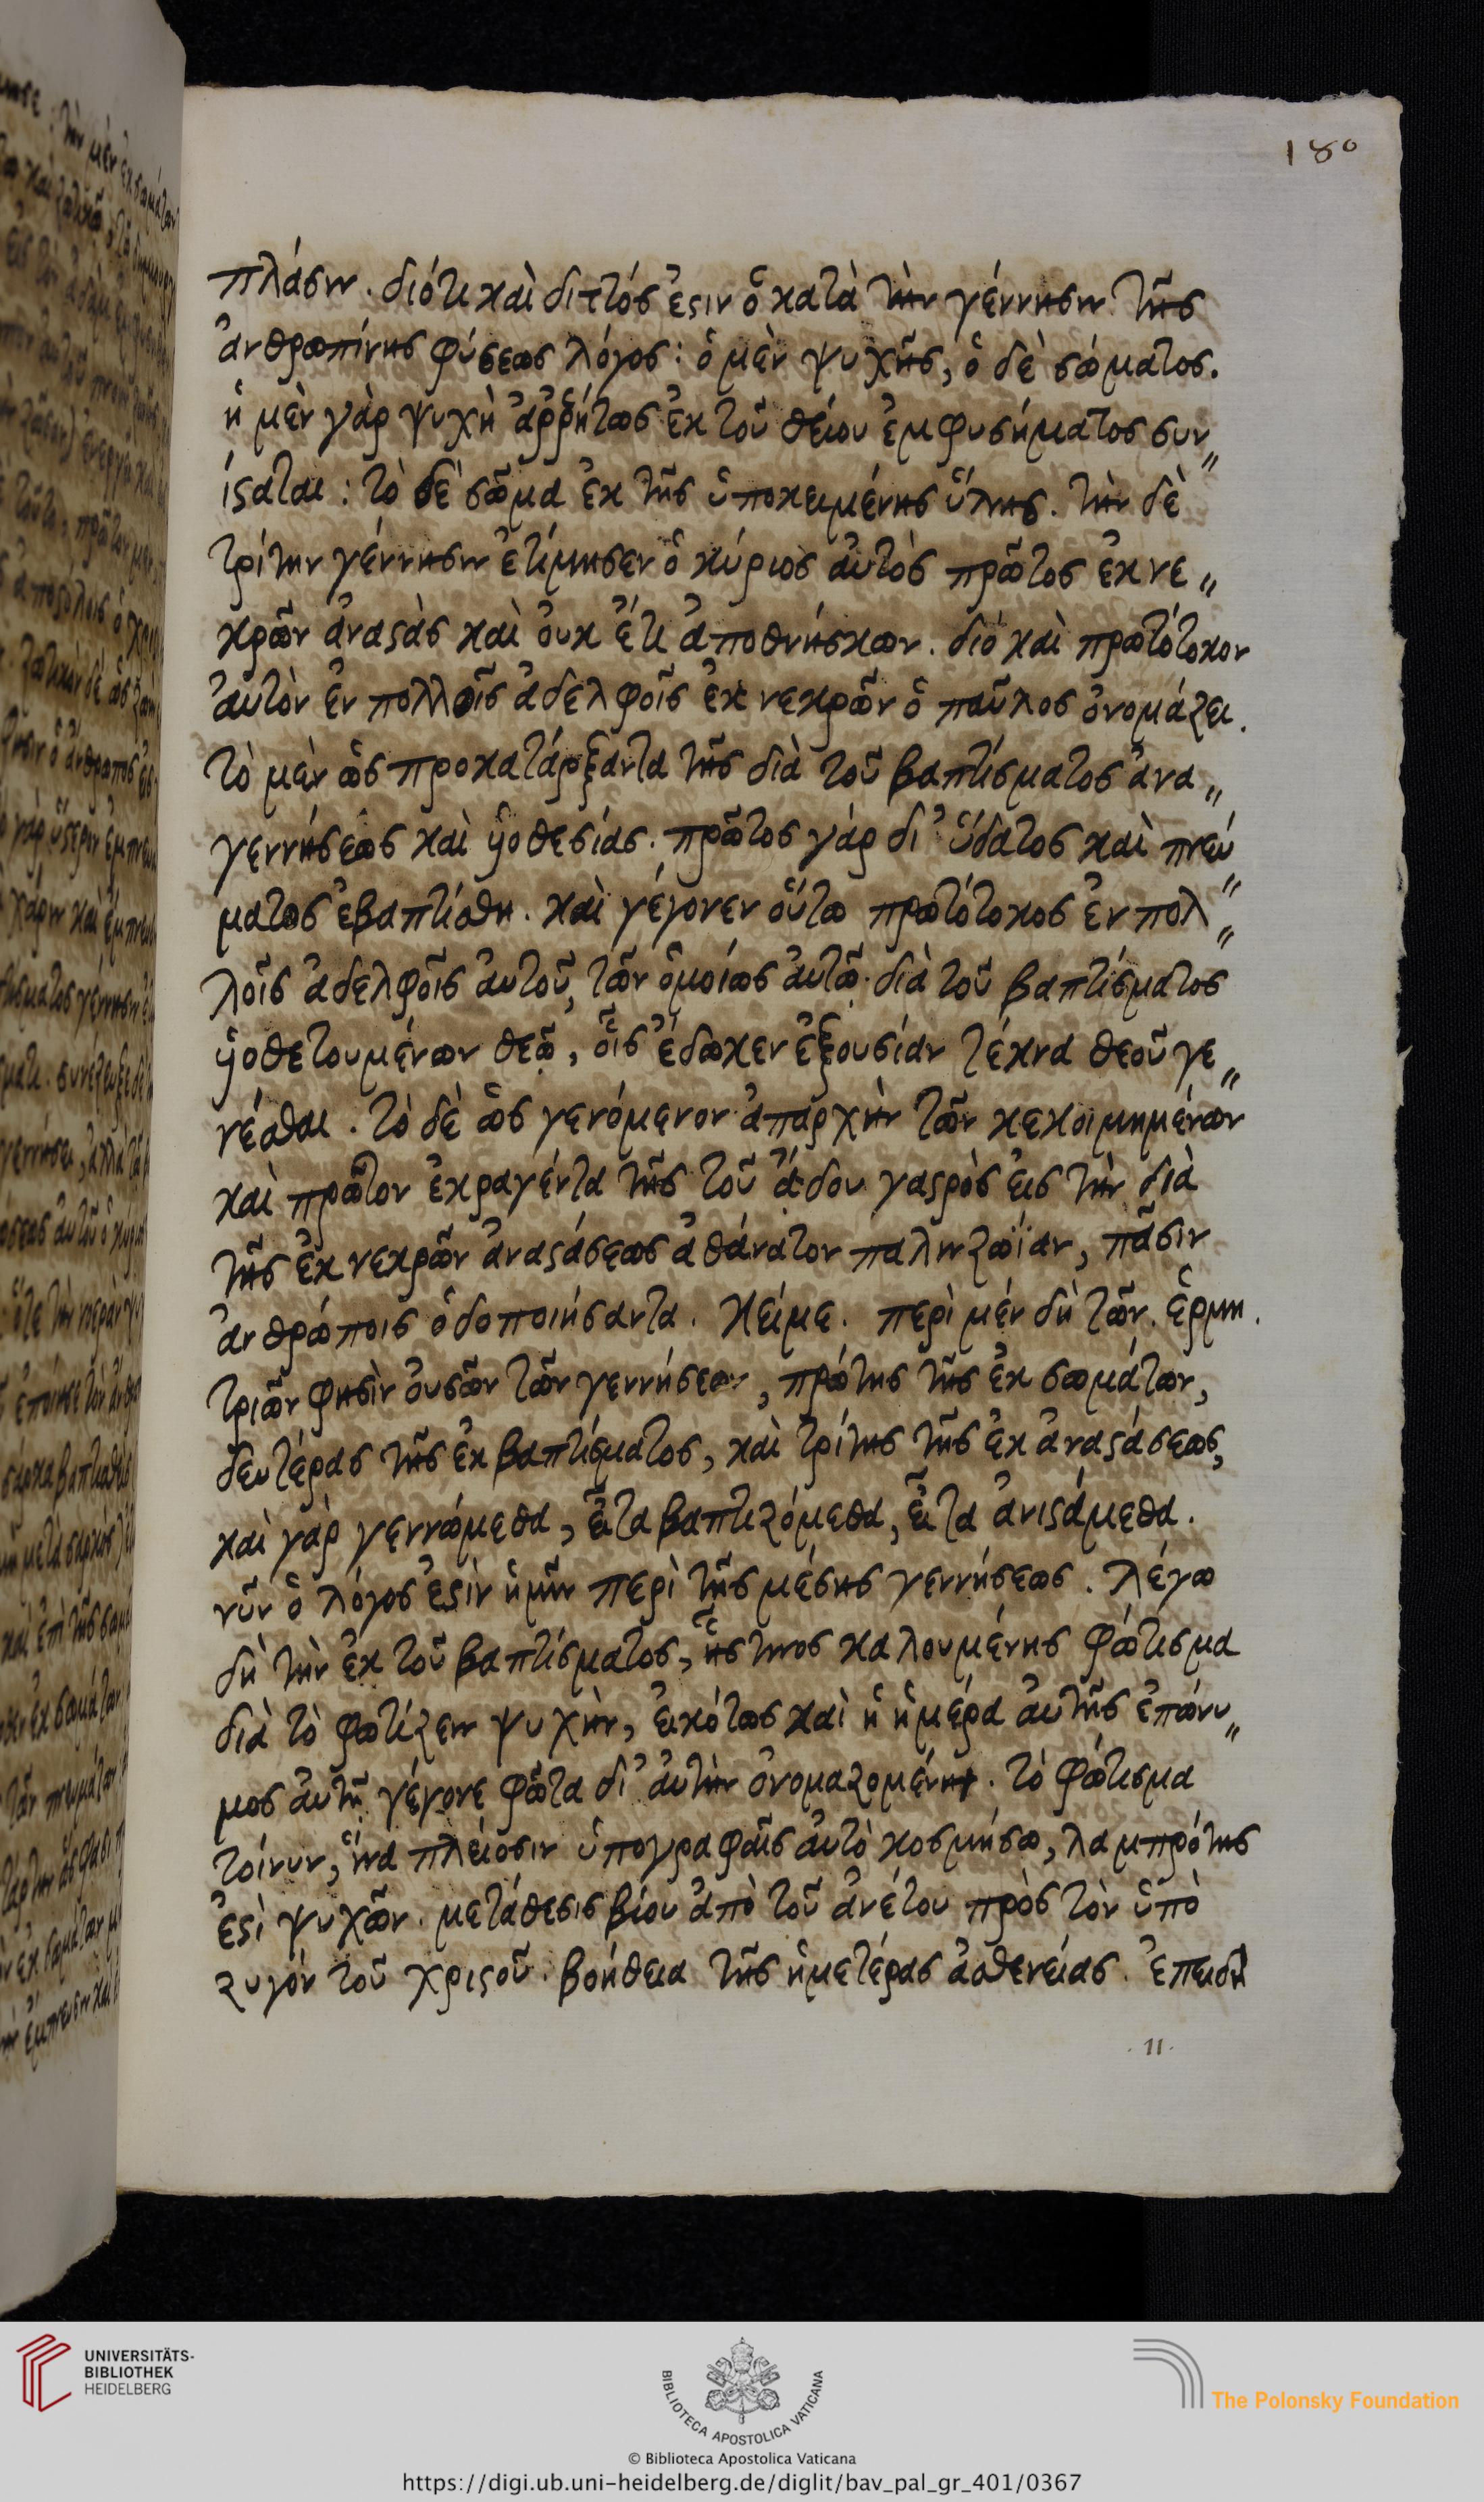 180
πλάσιν. διότι καὶ διττός ἐστιν ὁ κατὰ τὴν γέννησιν τῆς
ἀνθρωπίνης φύσεως λόγος: ὁ μὲν ψυχῆς, ὁ δὲ σώματος.
ἡ μὲν γὰρ ψυχὴ ἀῤῥήτως ἐκ τοῦ θείου ἐμφυσήματος συν〃
ίσταται: τὸ δὲ σῶμα ἐκ τῆς ὑποκειμένης ὕλης. τὴν δὲ
τρίτην γέννησιν ἐτίμησεν ὁ κύριος αὐτὸς πρῶτος ἐκ νε〃
κρῶν ἀναστὰς καὶ οὐκ ἔτι ἀποθνήσκων. διό καὶ πρωτότοκον
αὐτὸν ἐν πολλοῖς ἀδελφοῖς ἐκ νεκρῶν ὁ παῦλος ὀνομάζει.
τὸ μὲν ὡς προκατάρξαντα τῆς διὰ τοῦ βαπτίσματος ἀνα〃
γεννήσεως καὶ ὑοθεσίας. πρῶτος γάρ δι' ὕδατος καὶ πνεύ〃
ματος ἐβαπτίσθη. καὶ γέγονεν οὕτω πρωτότοκος ἐν πολ〃
λοῖς ἀδελφοῖς αὐτοῦ, τῶν ὁμοίως αὐτῷ διὰ τοῦ βαπτίσματος
ὑοθετουμένων θεῷ, οἷς ἔδωκεν ἐξουσίαν τέκνα θεοῦ γε〃
νέσθαι. τὸ δὲ ὡς γενόμενον ἀπαρχὴν τῶν κεκοιμημένων
καὶ πρῶτον ἐκραγέντα τῆς τοῦ ἅδου γαστρὸς εἰς τὴν διὰ
τῆς ἐκ νεκρῶν ἀναστάσεως ἀθάνατον παλινζωΐαν, πᾶσιν
ἀνθρώποις ὁδοποιήσαντα. Κείμε. περὶ μέν δὴ τῶν. ἑρμη.
τριῶν φησὶν οὐσῶν τῶν γεννήσεων, πρώτης τῆς ἐκ σωμάτων,
δευτέρας τῆς ἐκ βαπτίσματος, καὶ τρίτης τῆς ἐκ ἀναστάσεως,
καὶ γὰρ γεννώμεθα, εἶτα βαπτιζόμεθα, εἶτα ἀνιστάμεθα.
νῦν ὁ λόγος ἐστὶν ἡμῖν περὶ τῆς μέσης γεννήσεως. λέγω
δὴ τὴν ἐκ τοῦ βαπτίσματος, ἧς τινος καλουμένης φώτισμα
διὰ τὸ φωτίζειν ψυχὴν, εἰκότως καὶ ἡ ἡμέρα αὐτῆς ἐπώνυ〃
μος αὐτῇ γέγονε φῶτα δι' αὐτὴν ὀνομαζομένη. τὸ φώτισμα
τοίνυν, ἵνα πλείοσιν ὑπογραφαῖς αὐτὸ κοσμήσω, λαμπρότης
ἐστὶ ψυχῶν. μετάθεσις βίου ἀπὸ τοῦ ἀνέτου πρὸς τὸν ὑπὸ
ζυγόν τοῦ χριστοῦ. βοήθεια τῆς ἡμετέρας ἀσθενείας. ἐπειδὴ
.11.
UNIVERSITÄTS-
BIBLIOTHEK
HEIDELBERG
BIBLIOTECA APOSTOLICA VATICANA
The Polonsky Foundation
© Biblioteca Apostolica Vaticana
https://digi.ub.uni-heidelberg.de/diglit/bav_pal_gr_401/0367